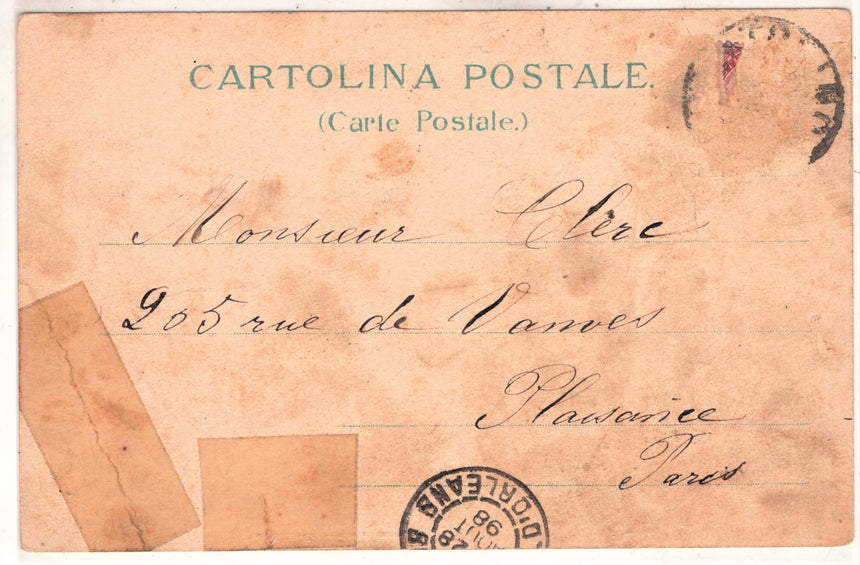 CARTOLINA POSTALE.
(Carte Postale.)
Monsieur Clerc
205 rue de Vanves
Plaisance
Paris
D'ORLEANS
28
AOUT
98